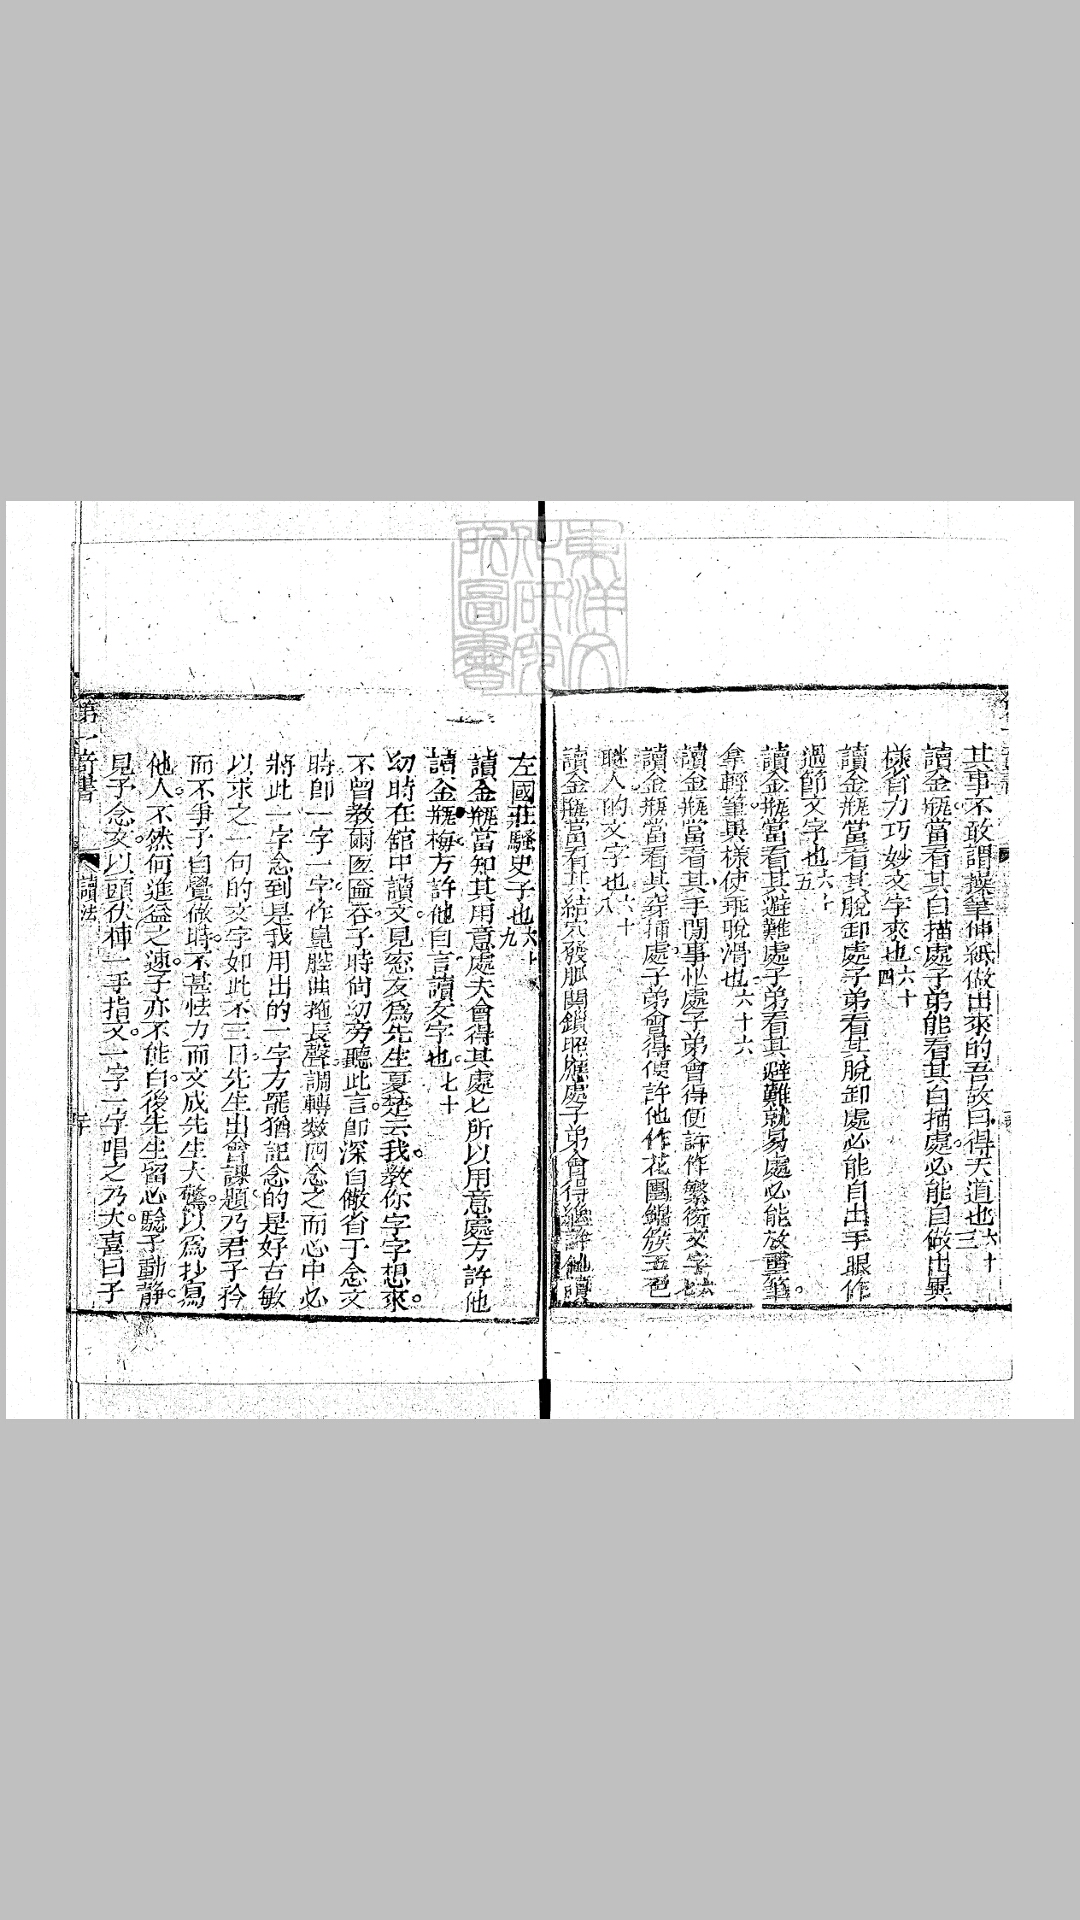 其事不敢謂操筆伸紙做出來的吾故曰得天道也六十三
讀金瓶當看其白描處子弟能看其白描處必能自做出異
樣省力巧妙文字來也六十四
讀金瓶當看其脫卸處子弟看其脫卸處必能自出手眼作
過節文字也六十五
讀金瓶當看其避難處子弟看其避難就易處必能放重筆
拿輕筆異樣使乖脫滑也六十六
讀金瓶當看其手閒事忙處子弟會得便許作繁衍文字也六十七
讀金瓶當看其穿揷處子弟會得便許他作花團錦簇五色
瞇人的文字也六十八
讀金瓶當看其結穴發脈關鎖照應處子弟會得纔許他讀
左國莊騷史子也六十九
讀金瓶當知其用意處夫會得其處處所以用意處方許他
讀金瓶梅方許他自言讀文字也七十
幼時在舘中讀文見窓友爲先生夏楚云我教你字字想來
不曾教爾囫圇吞子時尙幼旁聽此言卽深自儆省于念文
時卽一字一字作崑腔曲拖長聲調轉數四念之而心中必
將此一字念到是我用出的一字方罷猶記念的是好古敏
以求之一句的文字如此不三日先生出會課題乃君子矜
而不爭子自覺做時不甚怯力而文成先生大驚以爲抄寫
他人不然何進益之速子亦不能白後先生留心驗子動靜
見子念文以頭伏棹一手指文一字一字唱之乃大喜曰子
第一奇書
讀法
東洋文化研究所圖書